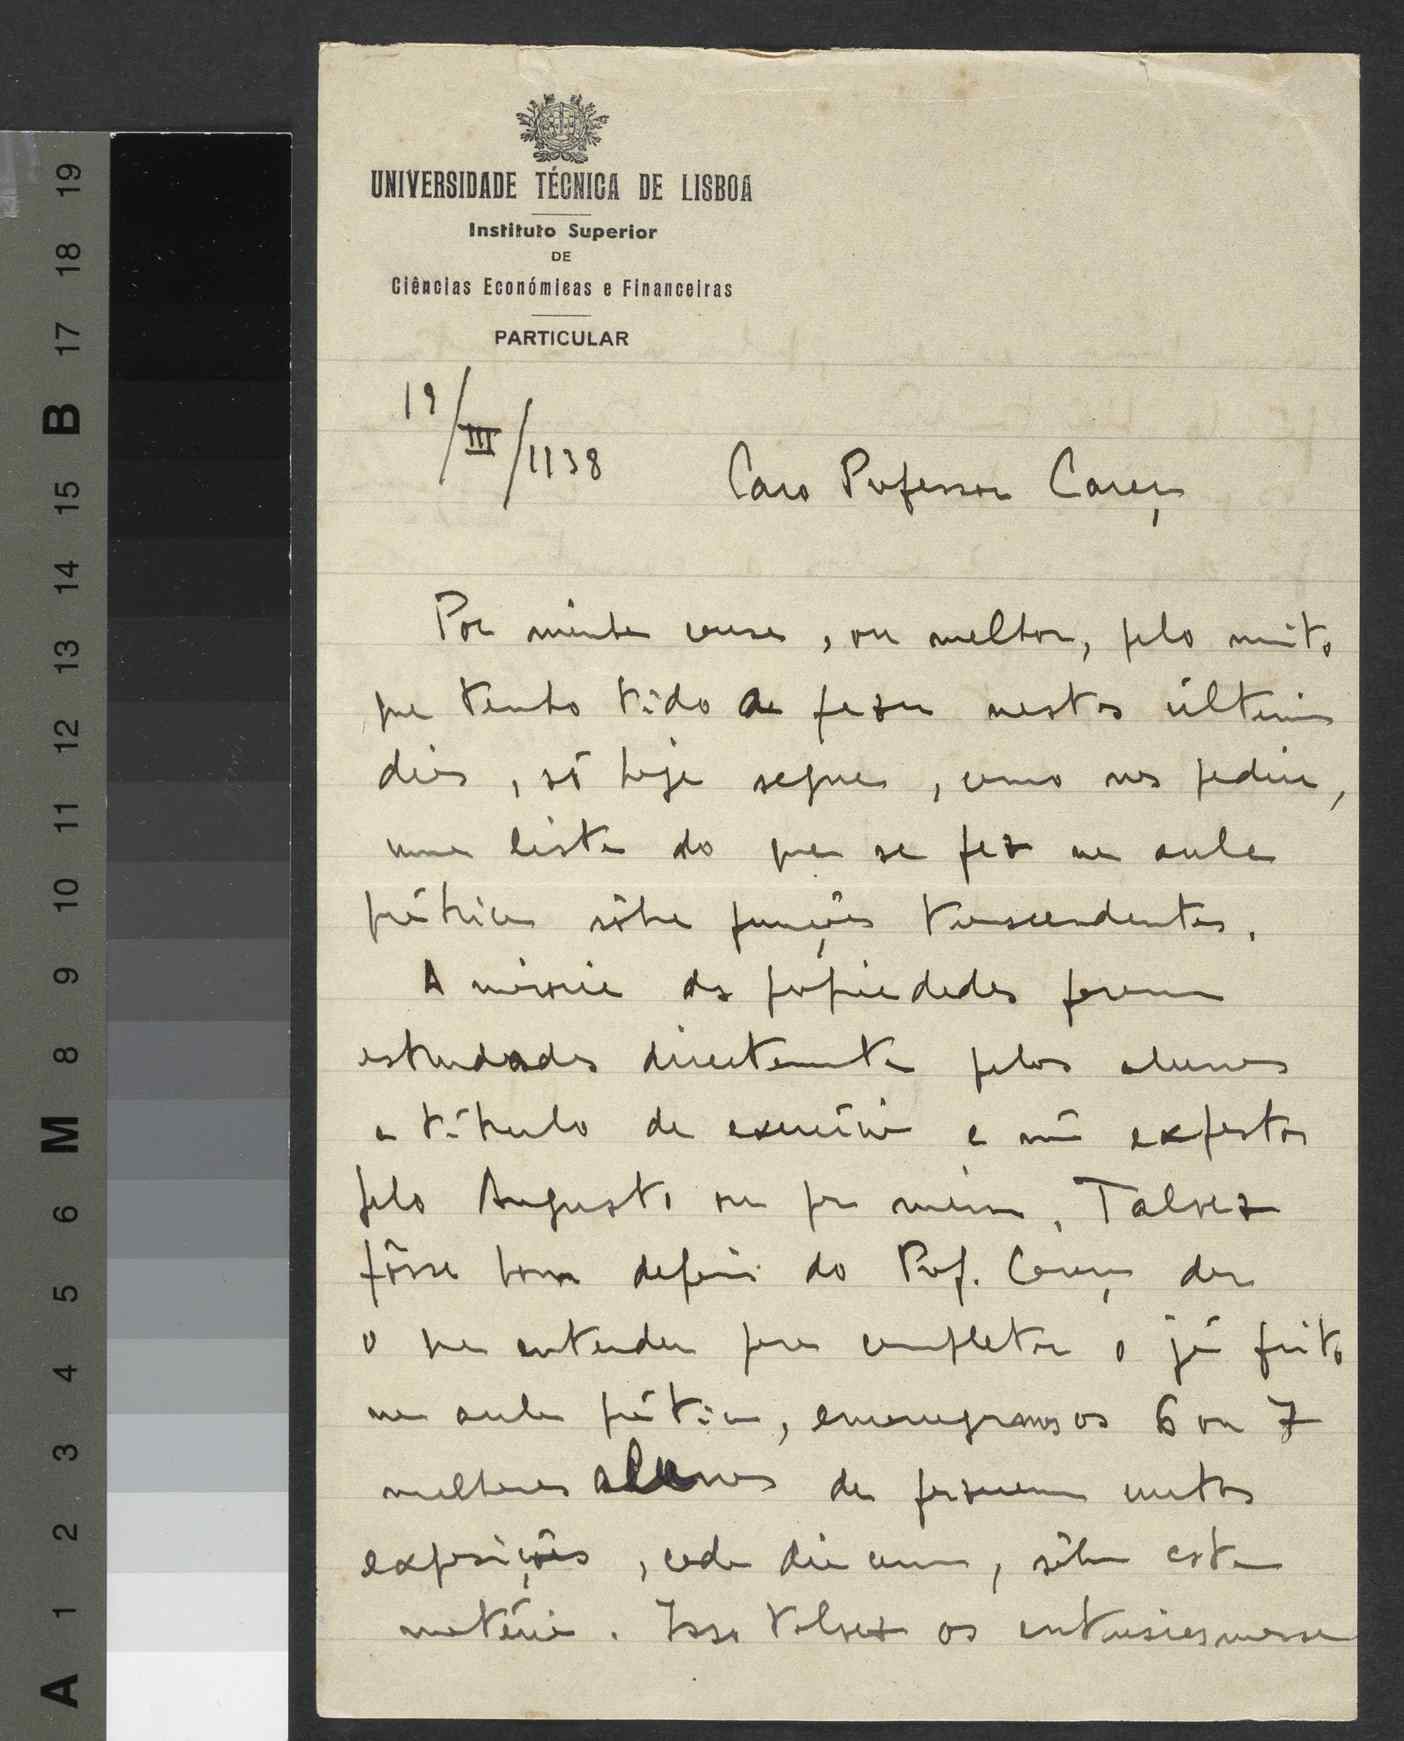 UNIVERSIDADE TÉCNICA DE LISBOA
Instituto Superior
DE
Ciências Económicas e Financeiras
PARTICULAR
19/III/1938
Caro Professor Caraça
Por minha causa, ou melhor, pelo muito
que tenho tido a fazer nestes últimos
dias, só hoje segue, como nos pediu,
uma lista do que se fez na aula
prática sôbre funções transcendentes.
A maioria das propriedades foram
estudadas directamente pelos alunos
a título de exercício e não expostas
pelo Augusto ou por mim. Talvez
fôsse bom depois do Prof. Caraça dar
o que entender para completar o já feito
na aula prática, encarregarmos os 6 ou 7
melhores alunos de fazerem curtas
exposições, cada dia um, sôbre esta
matéria. Isso talvez os entusiasmasse
A 1 2 3 4 5 6 M 8 9 10 11 12 13 14 15 B 17 18 19